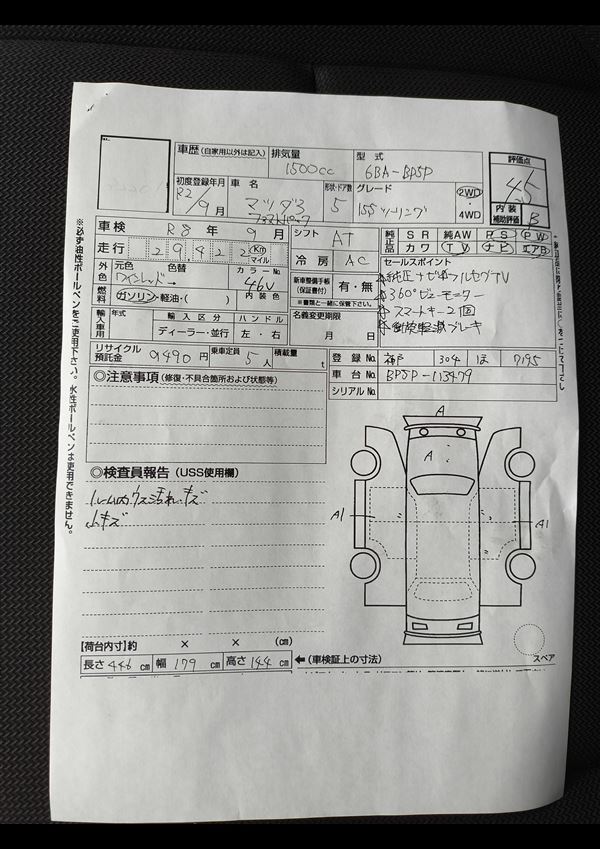 車歴（自家用以外は記入）
排気量
1500cc
型式
6BA-BP5P
評価点
4.5
初度登録年月
R2/9月
車名
マツダ3
ファストバック
形状・ドア数
5
グレード
15Sツーリング
2WD
・
4WD
内装
補助評価
B
車検 R8年 9月
走行 29,422 Km マイル
シフト AT
冷房 AC
純正品
SR 純AW PS PW
カワ TV ナビ エアB
外色
元色 色替
ワインレッド→
カラーNo.
46V
燃料
ガソリン・軽油・（ ）
内装色
新車整備手帳
（保証書付）
有・無
※書類と一緒に保管下さい。
セールスポイント
純正ナビ フルセグTV
360°ビューモニター
スマートキー
衝突軽減ブレーキ
輸入車用
年式
輸入区分
ハンドル
ディーラー・並行
左・右
名義変更期限
月 日
リサイクル
預託金
9490円
乗車定員
5人
積載量
t
登録No. 神戸 304 ほ 7195
車台No. BP5P-113479
シリアルNo.
◎注意事項（修復・不具合箇所および状態等）
◎検査員報告（USS使用欄）
ルーム内ウス汚れ・キズ
小キズ
A
A
A1
A1
【荷台内寸】約 × × (cm)
長さ 446 cm 幅 179 cm 高さ 144 cm ←（車検証上の寸法）
スペア
※必ず油性ボールペンをご使用下さい。水性ボールペンは使用できません。